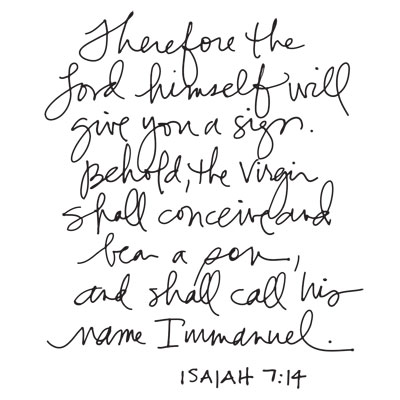 Therefore the
Lord himself will
give you a sign.
Behold, the Virgin
shall conceive and
bear a son,
and shall call his
name Immanuel.
ISAIAH 7:14